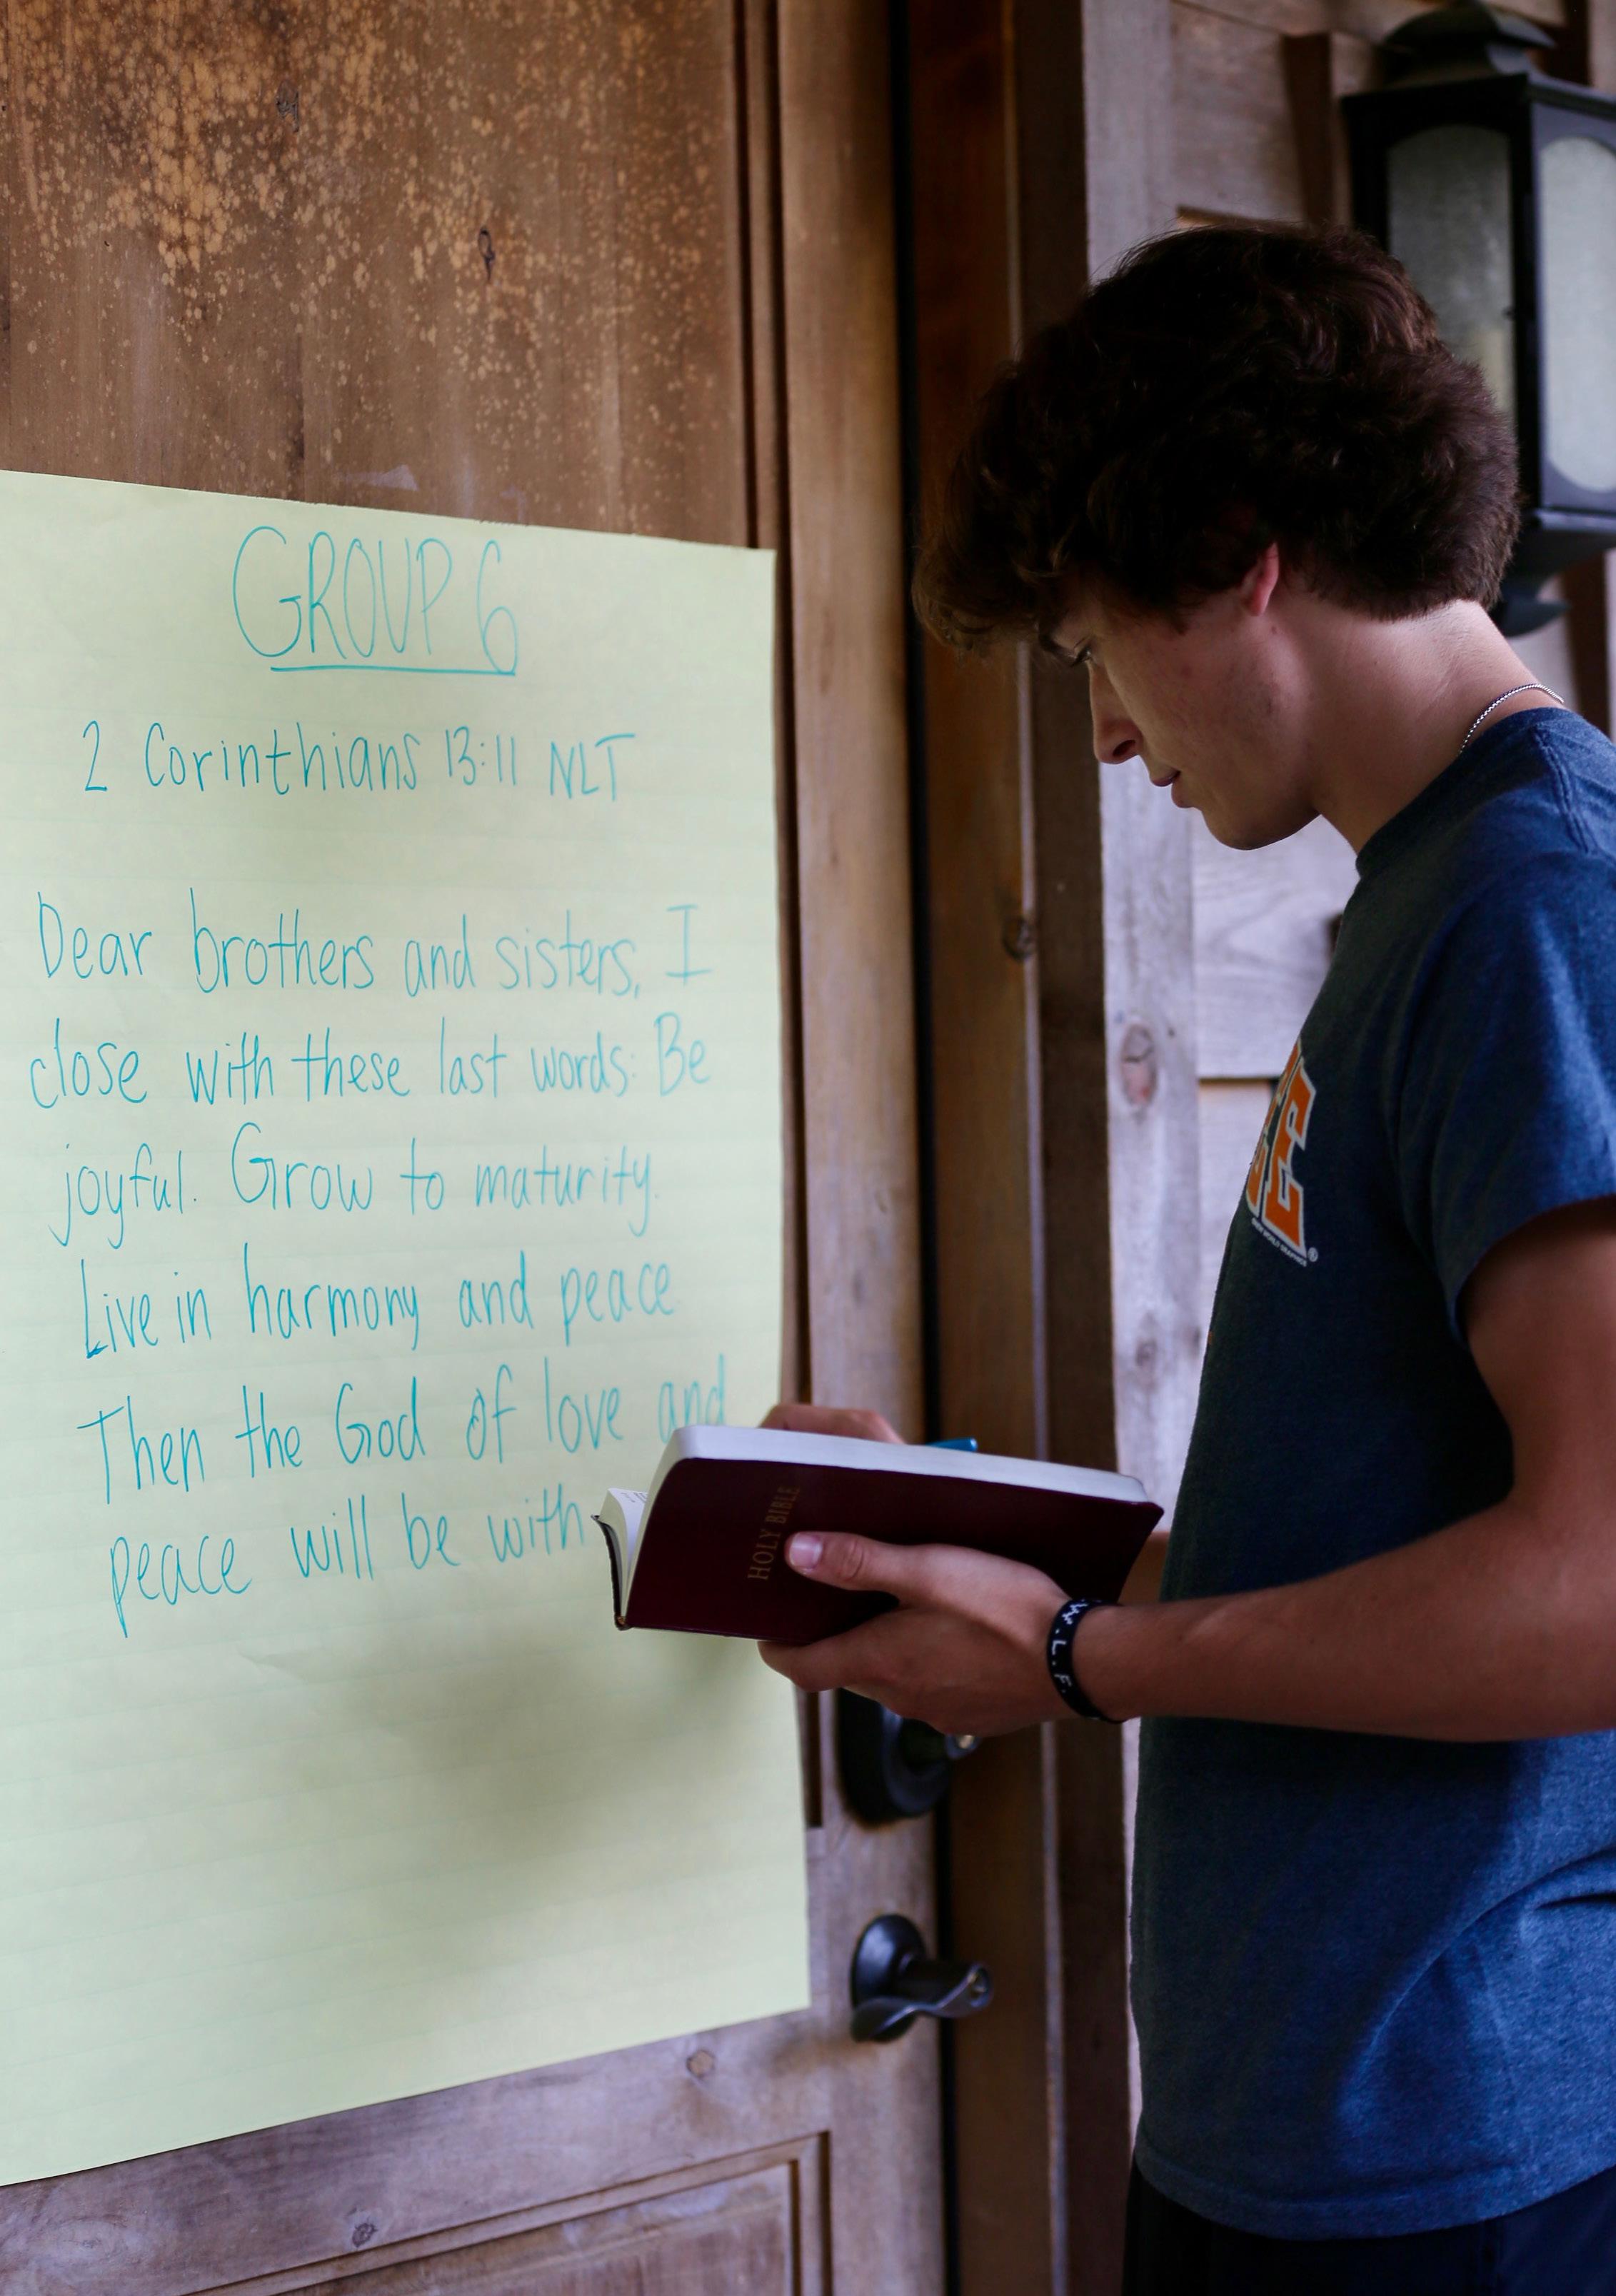 GROUP 6
2 Corinthians 13:11 NLT
Dear brothers and sisters, I
close with these last words: Be
joyful. Grow to maturity.
Live in harmony and peace.
Then the God of love and
peace will be with
HOLY BIBLE